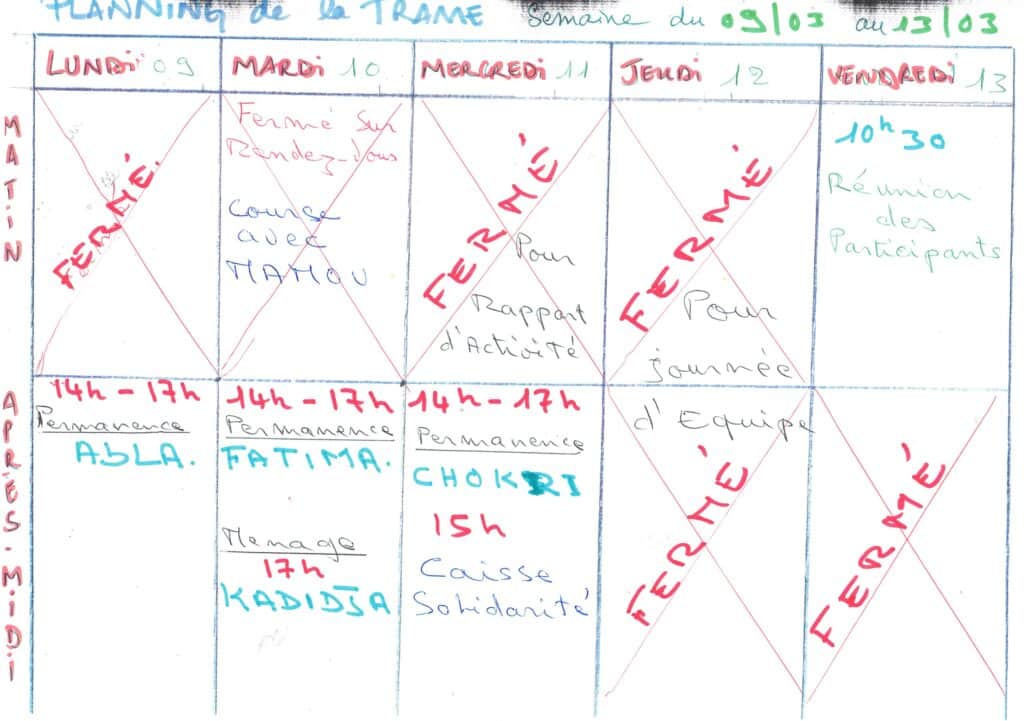 PLANNING de la TRAME Semaine du 09/03 au 13/03
LUNDI 09
MARDI 10
MERCREDI 11
JEUDI 12
VENDREDI 13
MATIN
FERMÉ.
Fermé Sur
Rendez-Vous
Course
avec
MAMOU
FERMÉ
Pour
Rapport
d'Activité
FERMÉ
Pour
journée
d'Equipe
10h30
Réunion
des
Participants
APRÈS-MIDI
14h - 17h
Permanence
ABLA.
14h - 17h
Permanence
FATIMA.
Menage
17h
KADIDJA
14h - 17h
Permanence
CHOKRI
15h
Caisse
Solidarité
FERMÉ
FERMÉ